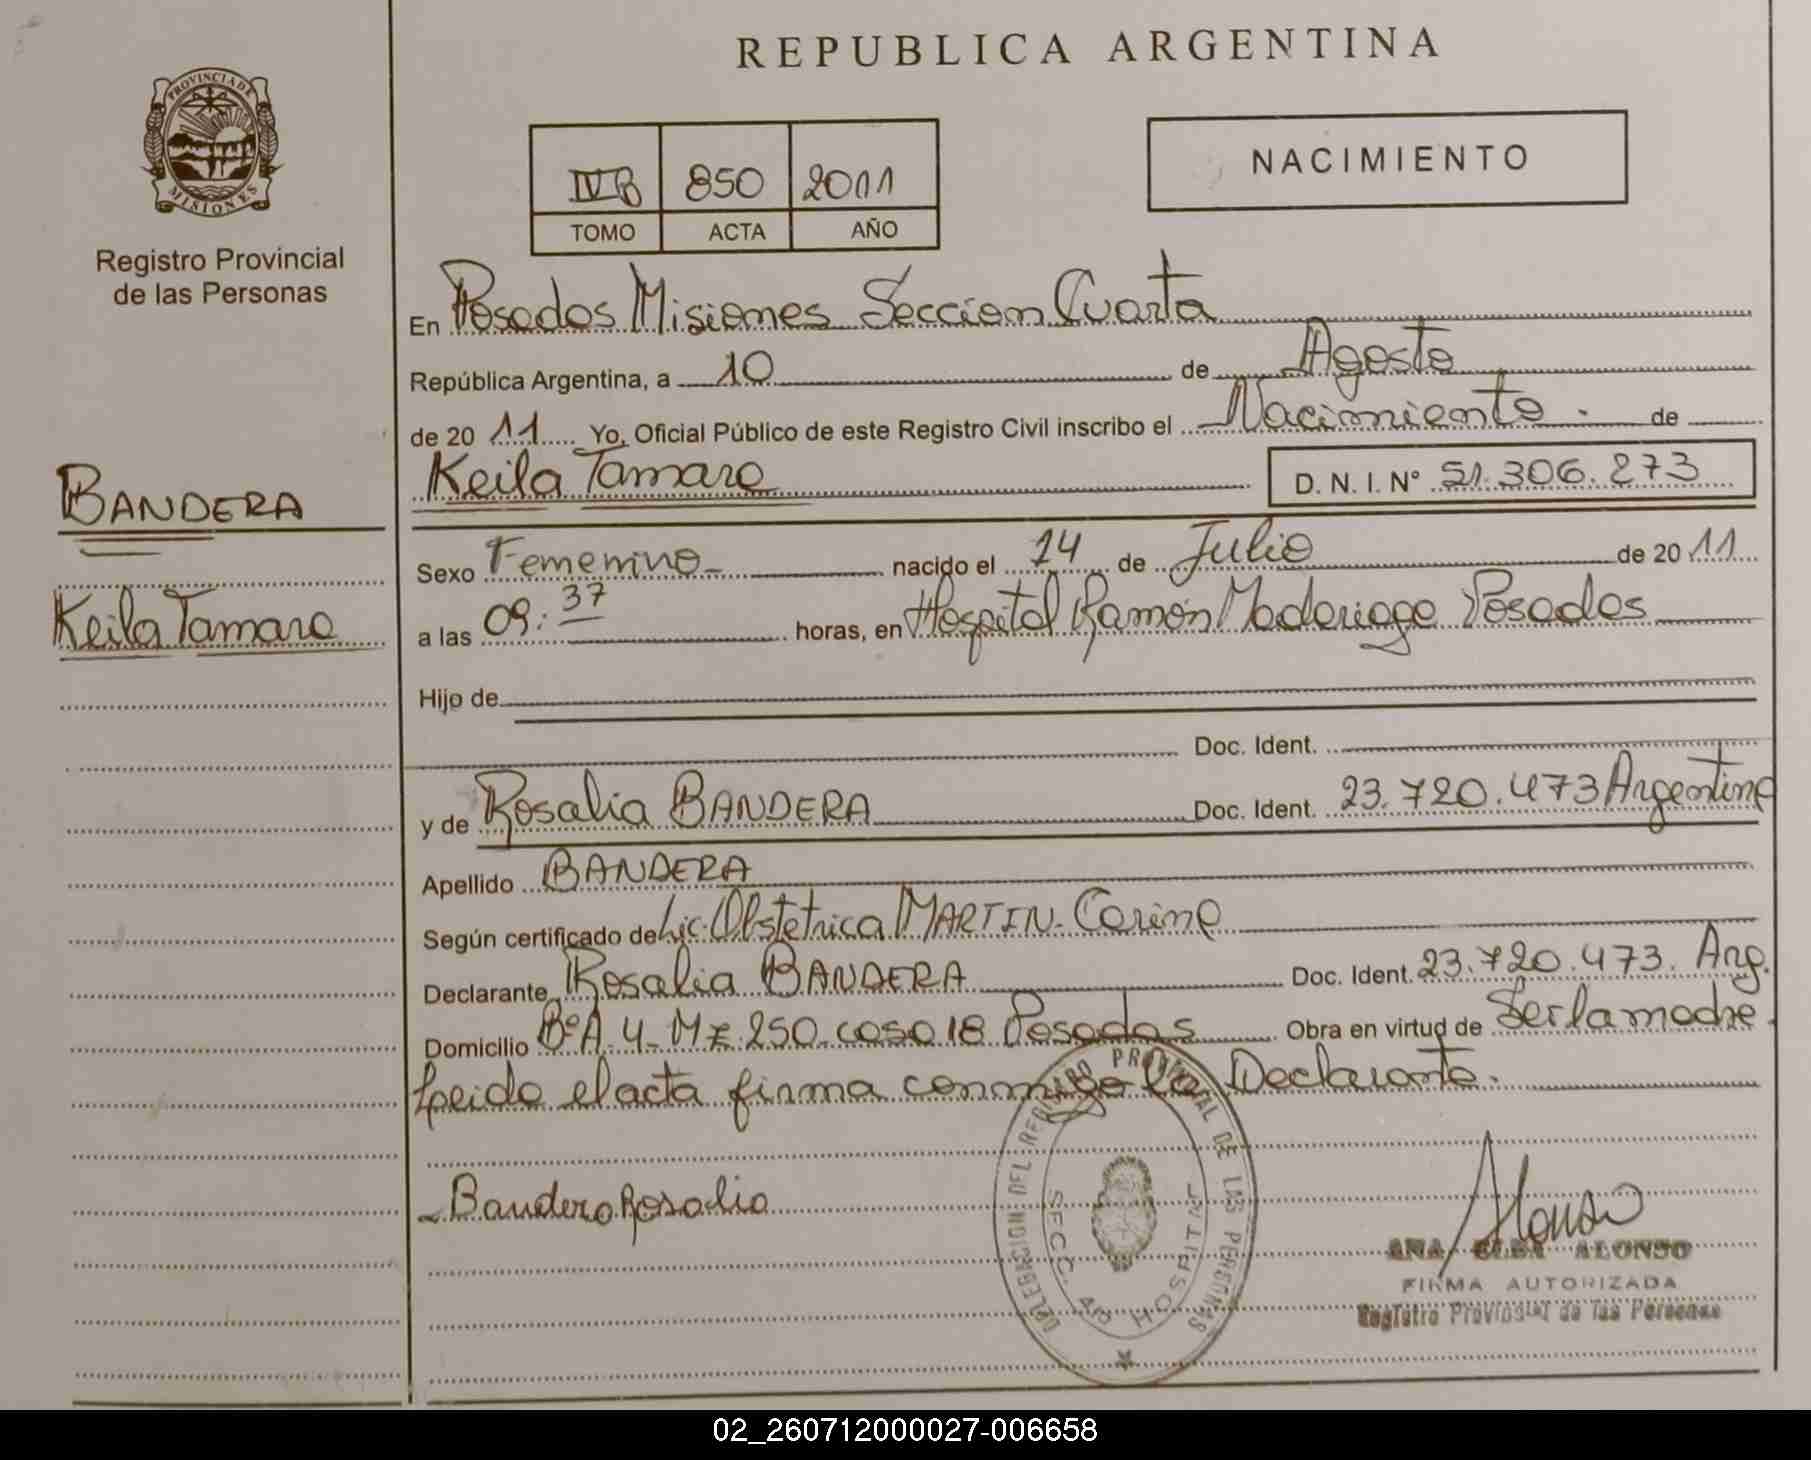 REPUBLICA ARGENTINA
PROVINCIA DE
MISIONES
Registro Provincial
de las Personas
IVB 850 2011
TOMO ACTA AÑO
NACIMIENTO
En Posadas Misiones Seccion Cuarta
República Argentina, a 10 de Agosto
de 20 11 Yo, Oficial Público de este Registro Civil inscribo el Nacimiento. de
Keila Tamara
D. N. I. N° 51.306.273
BANDERA
Keila Tamara
Sexo Femenino nacido el 14 de Julio de 20 11
a las 09:37 horas, en Hospital Ramón Madariaga Posadas
Hijo de
Doc. Ident.
y de Rosalia BANDERA Doc. Ident. 23.720.473 Argentina
Apellido BANDERA
Según certificado de Lic. Obstetrica MARTIN- Carina
Declarante Rosalia BANDERA Doc. Ident. 23.720.473. Arg.
Domicilio B° A-4- Mz 250- casa 18 Posadas Obra en virtud de Ser la madre.
Leida el acta firma conmigo la Declarante.
Bandera Rosalia
DELEGACION DEL REGISTRO PROVINCIAL DE LAS PERSONAS
SECC. 4ta HOSPITAL
Alonso
ANA ELBA ALONSO
FIRMA AUTORIZADA
Registro Provincial de las Personas
02_260712000027-006658